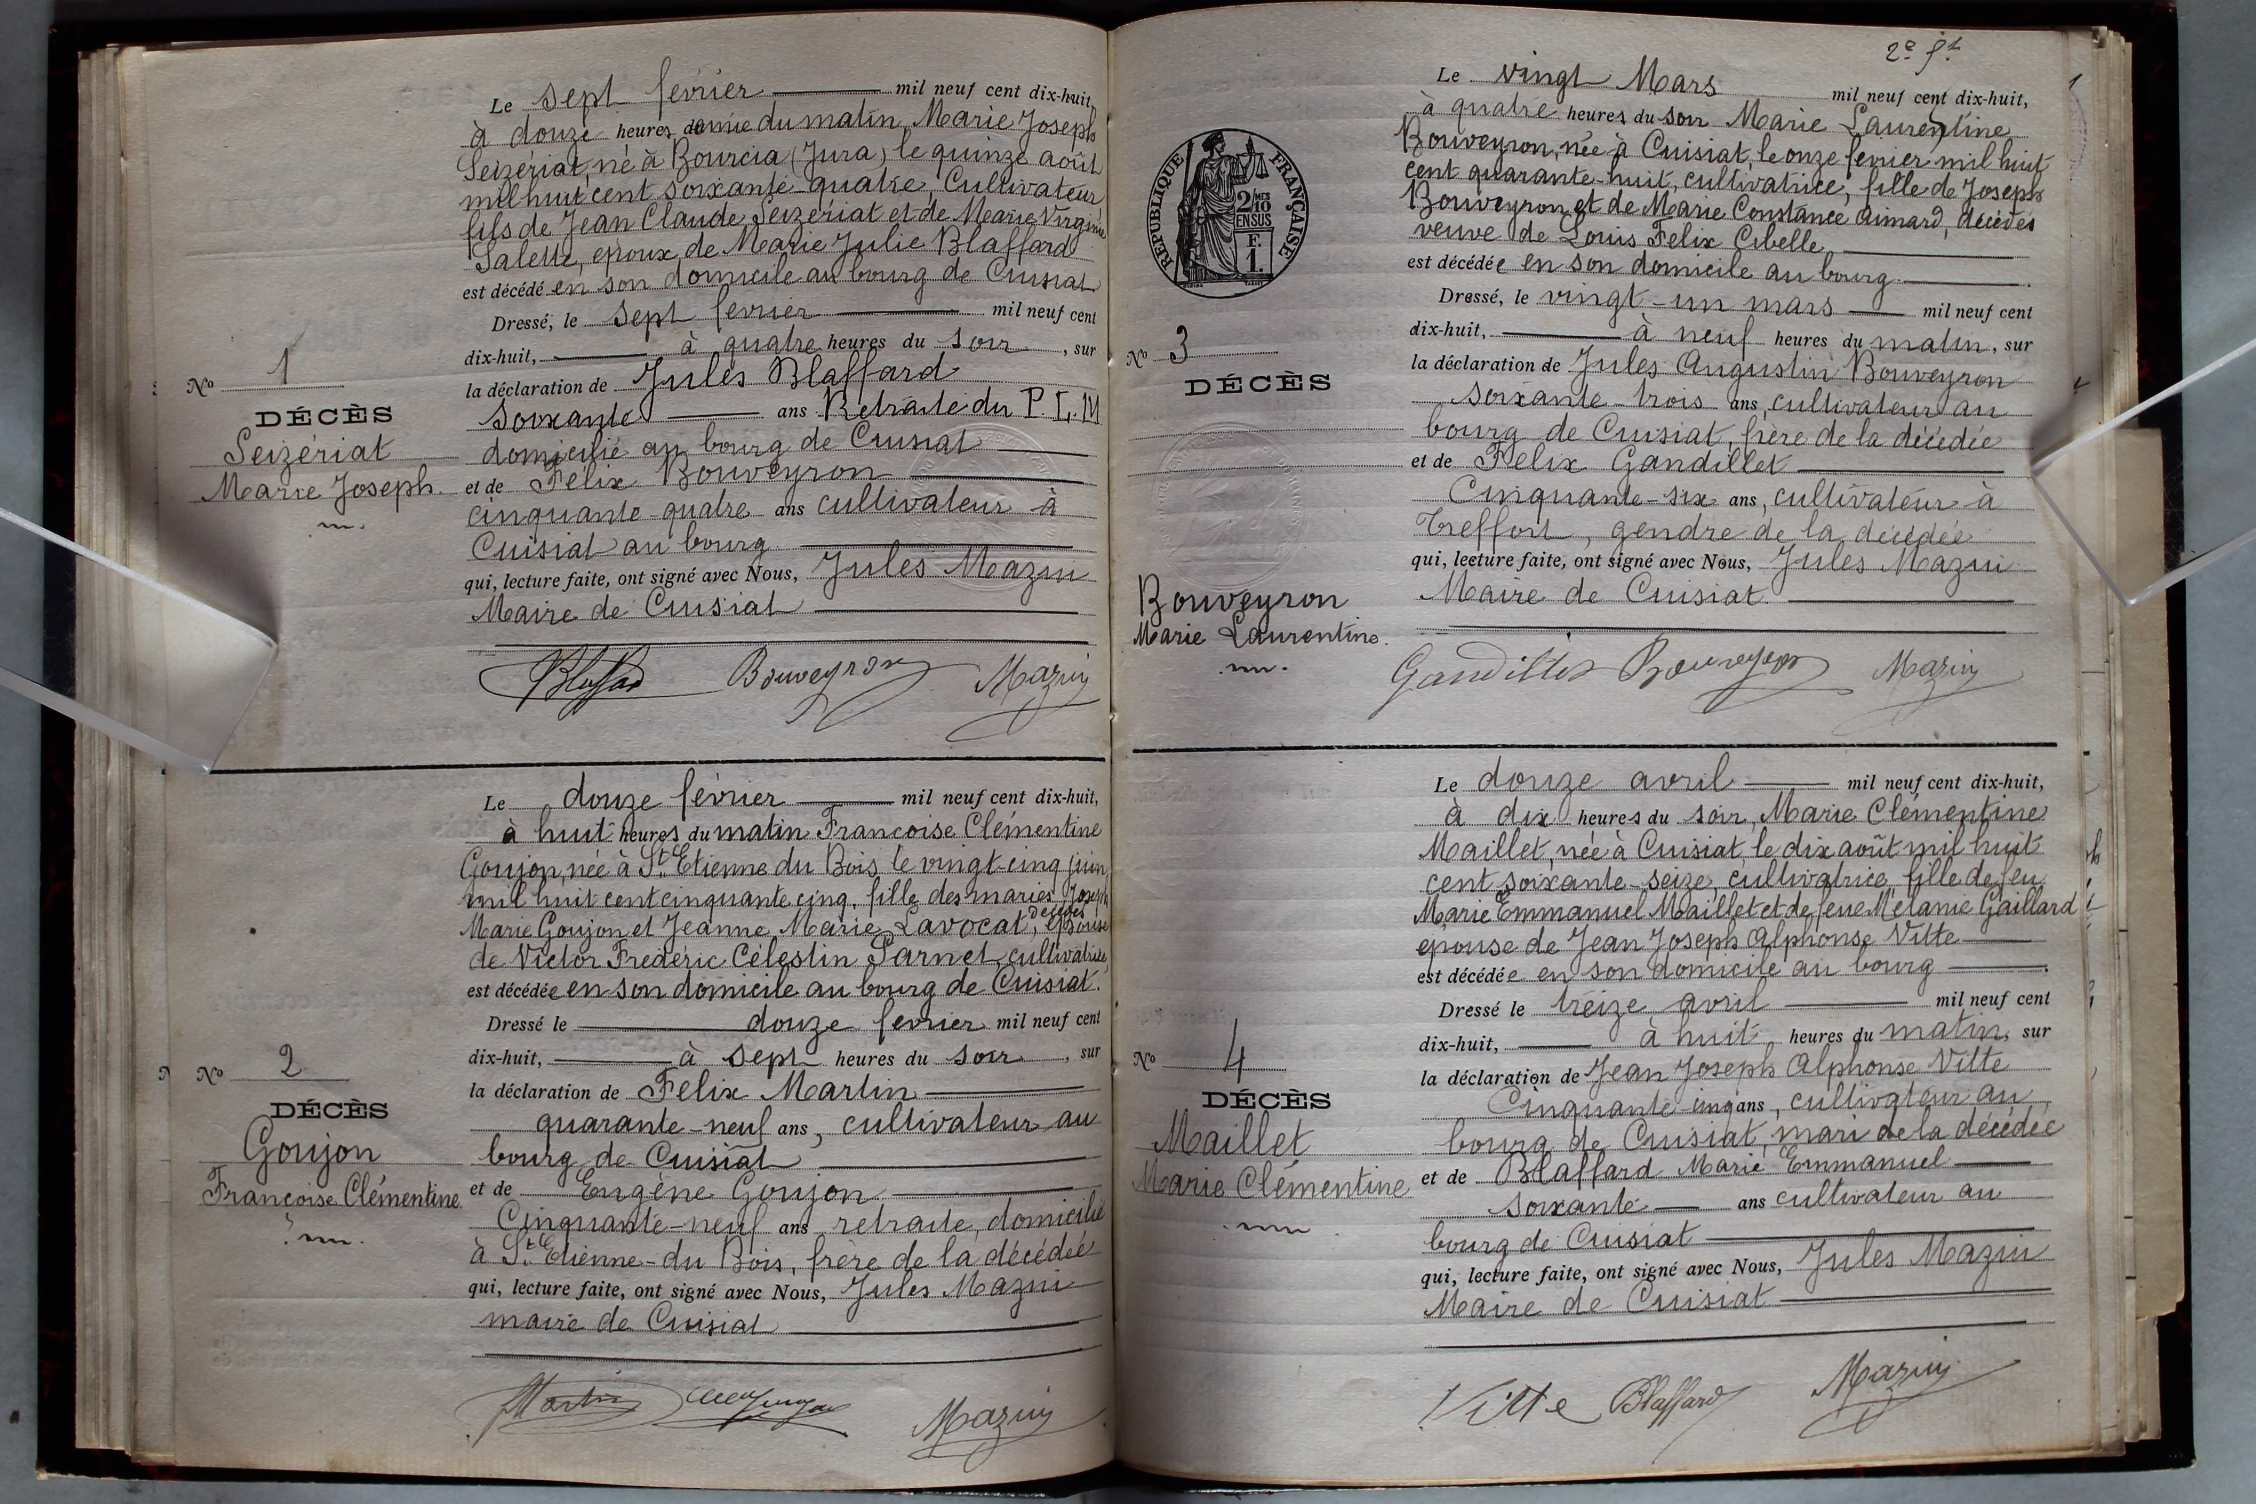 Le sept février mil neuf cent dix-huit,
à douze heures demie du matin, Marie Joseph
Seizériat, né à Bourcia (Jura) le quinze août
mil huit cent soixante-quatre, Cultivateur
fils de Jean Claude Seizériat et de Marie Virginie
Salette, époux de Marie Julie Blaffard
est décédé en son domicile au bourg de Cuisiat
Dressé, le sept février mil neuf cent
dix-huit, à quatre heures du soir, sur
la déclaration de Jules Blaffard
soixante ans Retraité du P. L. M
domicilié au bourg de Cuisiat
et de Félix Bouveyron
cinquante quatre ans cultivateur à
Cuisiat au bourg
qui, lecture faite, ont signé avec Nous, Jules Mazuy
Maire de Cuisiat
Blaffard Bouveyron Mazuy
No 1
DÉCÈS
Seizériat
Marie Joseph
Le douze février mil neuf cent dix-huit,
à huit heures du matin Françoise Clémentine
Goujon, née à St Etienne du Bois le vingt-cinq juin
mil huit cent cinquante cinq, fille des mariés Joseph
Marie Goujon et Jeanne Marie Lavocat, décédés, épouse
de Victor Frédéric Célestin Parnet, cultivatrice,
est décédée en son domicile au bourg de Cuisiat.
Dressé le douze février mil neuf cent
dix-huit, à sept heures du soir, sur
la déclaration de Felix Martin
quarante-neuf ans, cultivateur au
bourg de Cuisiat
et de Eugène Goujon
Cinquante-neuf ans retraité, domicilié
à St Etienne-du Bois, frère de la décédée
qui, lecture faite, ont signé avec Nous, Jules Mazuy
maire de Cuisiat
Martin Goujon Mazuy
No 2
DÉCÈS
Goujon
Françoise Clémentine
2e ft
Le vingt Mars mil neuf cent dix-huit,
à quatre heures du soir Marie Laurentine
Bouveyron, née à Cuisiat, le onze février mil huit
cent quarante-huit, cultivatrice, fille de Joseph
Bouveyron et de Marie Constance Aimard, décédés
veuve de Louis Felix Cibelle,
est décédée en son domicile au bourg.
Dressé, le vingt-un mars mil neuf cent
dix-huit, à neuf heures du matin, sur
la déclaration de Jules Augustin Bouveyron
soixante-trois ans, cultivateur au
bourg de Cuisiat, frère de la décédée
et de Felix Gandillet
Cinquante-six ans, cultivateur à
Treffort, gendre de la décédée
qui, lecture faite, ont signé avec Nous, Jules Mazuy
Maire de Cuisiat.
Gandillet Bouveyron Mazuy
RÉPUBLIQUE FRANÇAISE
2 MES
10
EN SUS
F.
1.
No 3
DÉCÈS
Bouveyron
Marie Laurentine.
Le douze avril mil neuf cent dix-huit,
à dix heures du soir, Marie Clémentine
Maillet, née à Cuisiat, le dix août mil huit
cent soixante-seize, cultivatrice, fille de feu
Marie Emmanuel Maillet et de feue Mélanie Gaillard
épouse de Jean Joseph Alphonse Vitte
est décédée en son domicile au bourg
Dressé le treize avril mil neuf cent
dix-huit, à huit heures du matin, sur
la déclaration de Jean Joseph Alphonse Vitte
Cinquante-cinq ans, cultivateur au
bourg de Cuisiat, mari de la décédée
et de Blaffard Marie Emmanuel
soixante ans cultivateur au
bourg de Cuisiat
qui, lecture faite, ont signé avec Nous, Jules Mazuy
Maire de Cuisiat
Vitte Blaffard Mazuy
No 4
DÉCÈS
Maillet
Marie Clémentine